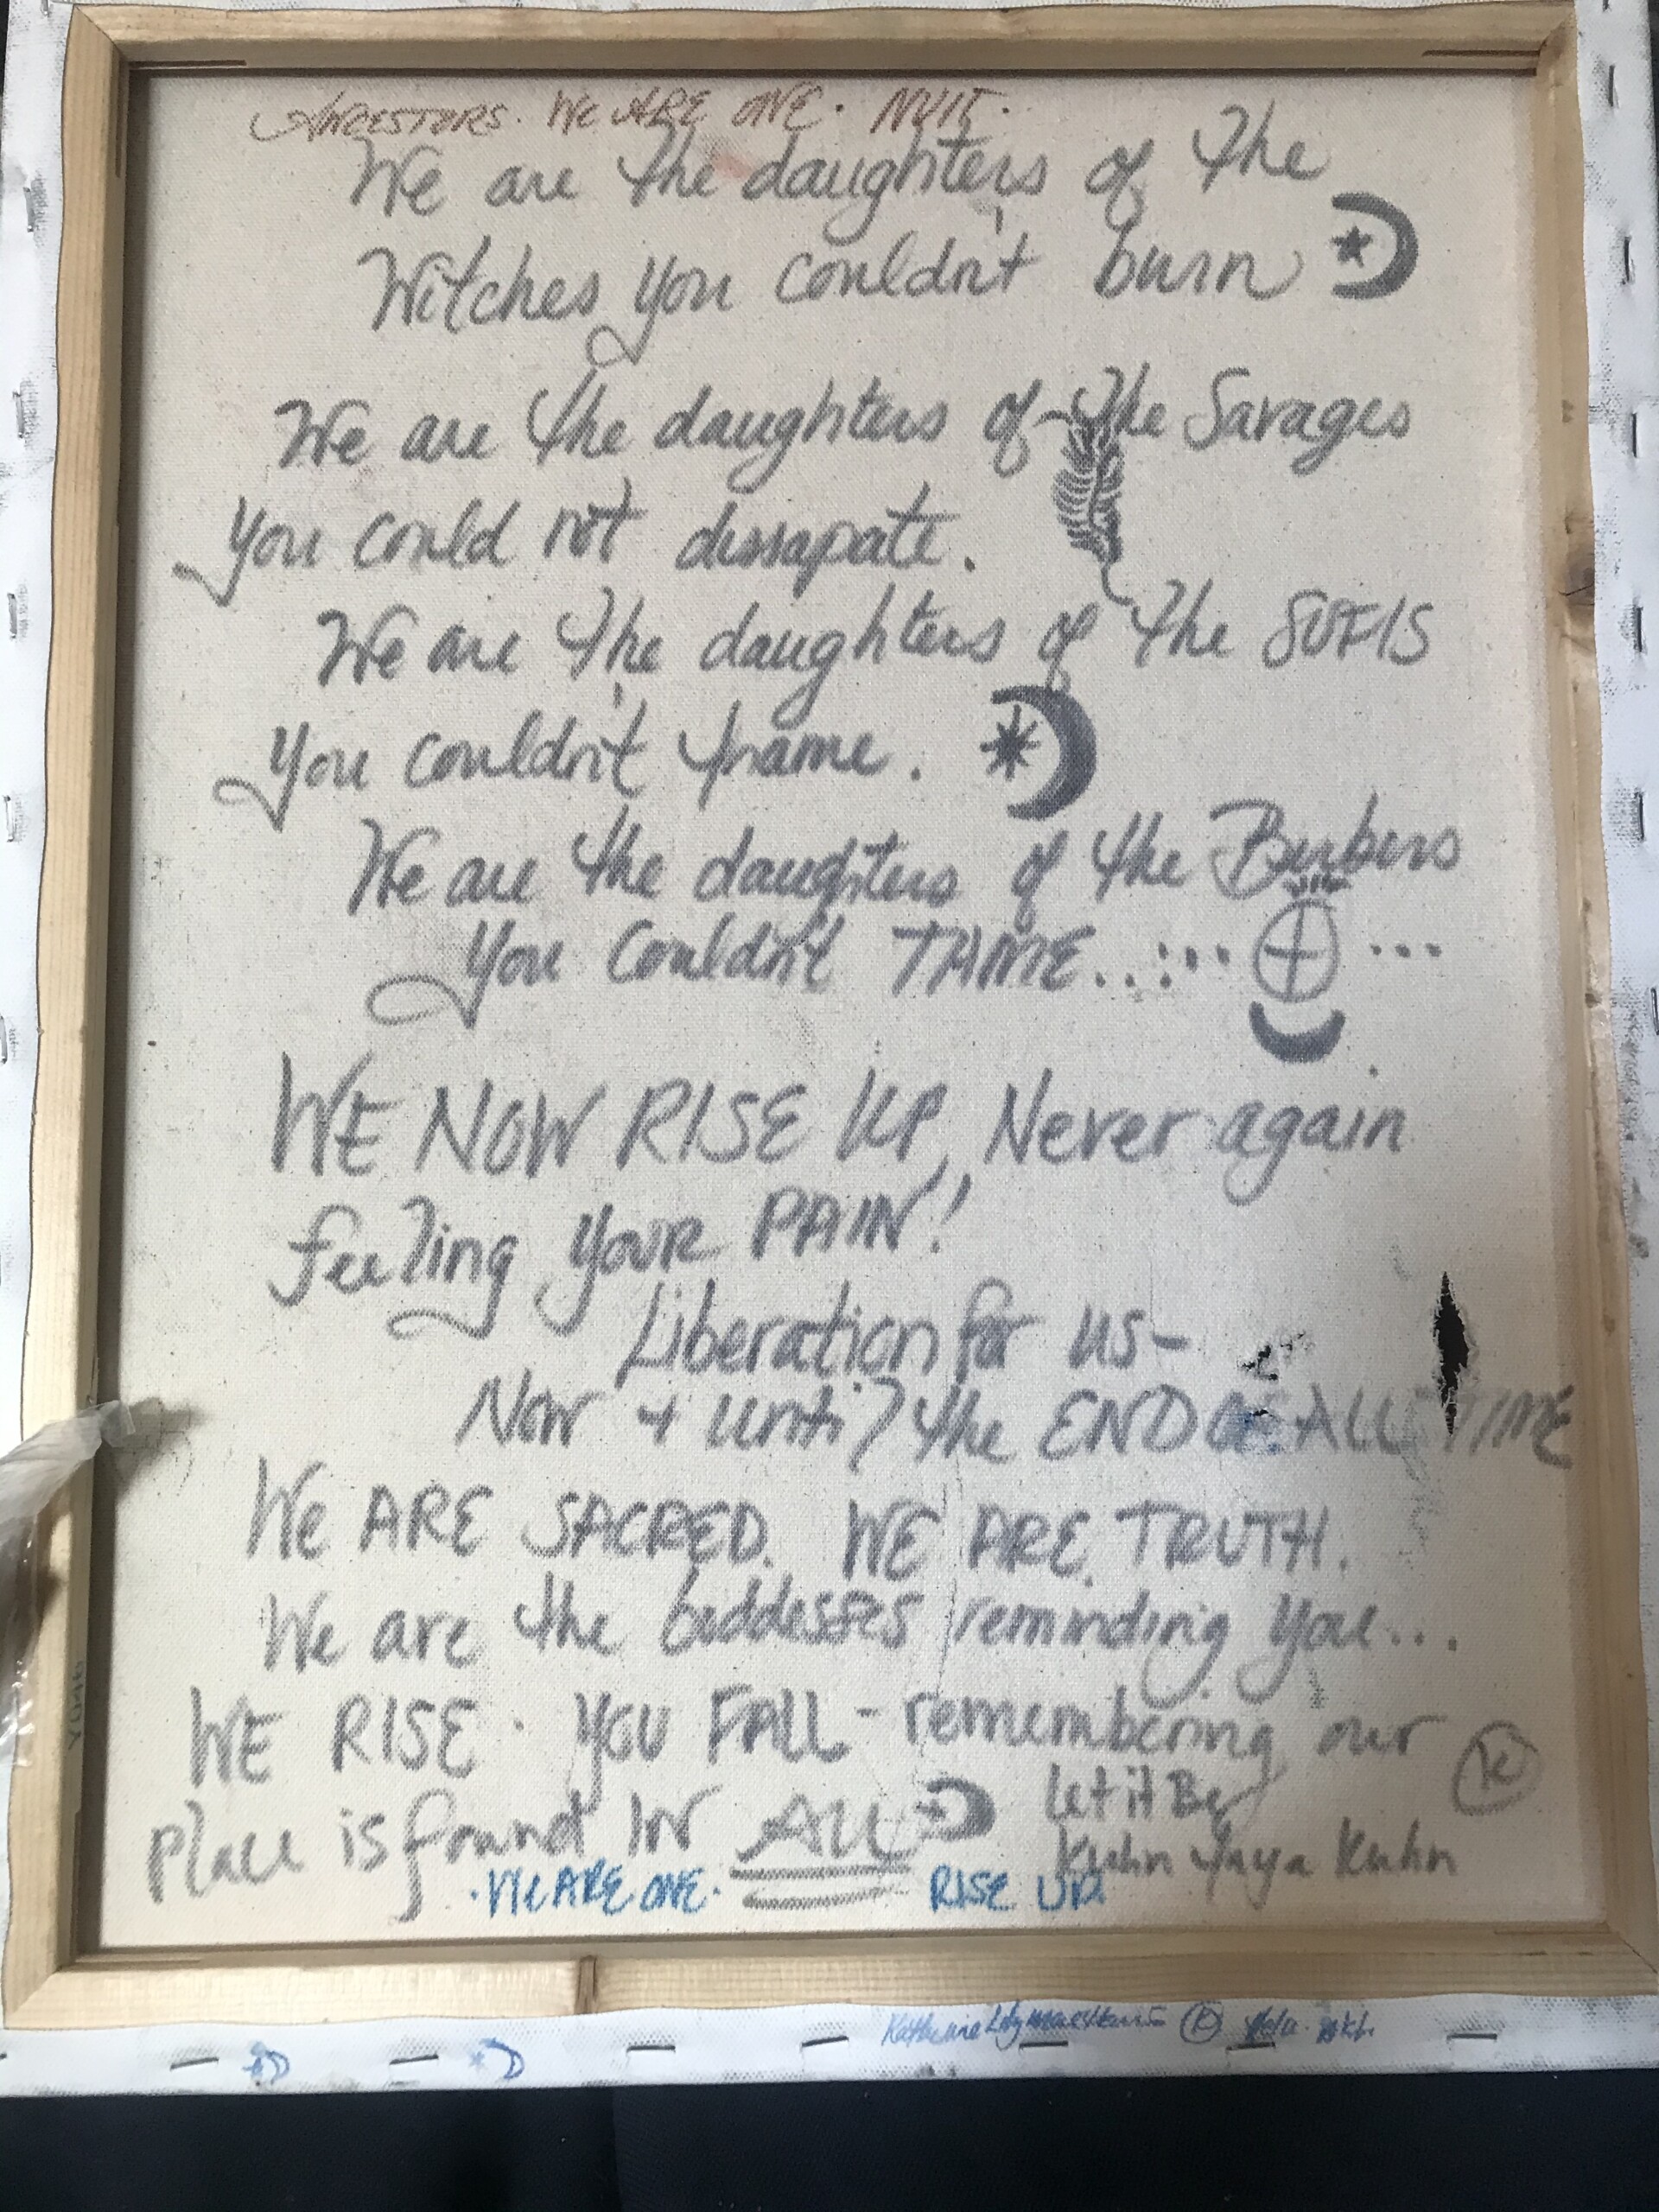 ANCESTORS. WE ARE ONE. NUIT.
We are the daughters of the
Witches you couldn't burn
We are the daughters of the Savages
you could not dissapate.
We are the daughters of the SUFIS
you couldn't frame.
We are the daughters of the Berbers
you couldn't TAME...
WE NOW RISE UP, Never again
feeling your PAIN!
Liberation for us-
Now + until the END OF ALL TIME
We ARE SACRED. WE ARE TRUTH.
We are the Goddesses reminding you...
WE RISE. YOU FALL - remembering our
place is found IN ALL
let it Be
K
Kuhn Yaya Kuhn
·WE ARE ONE· RISE UP
Katherine K